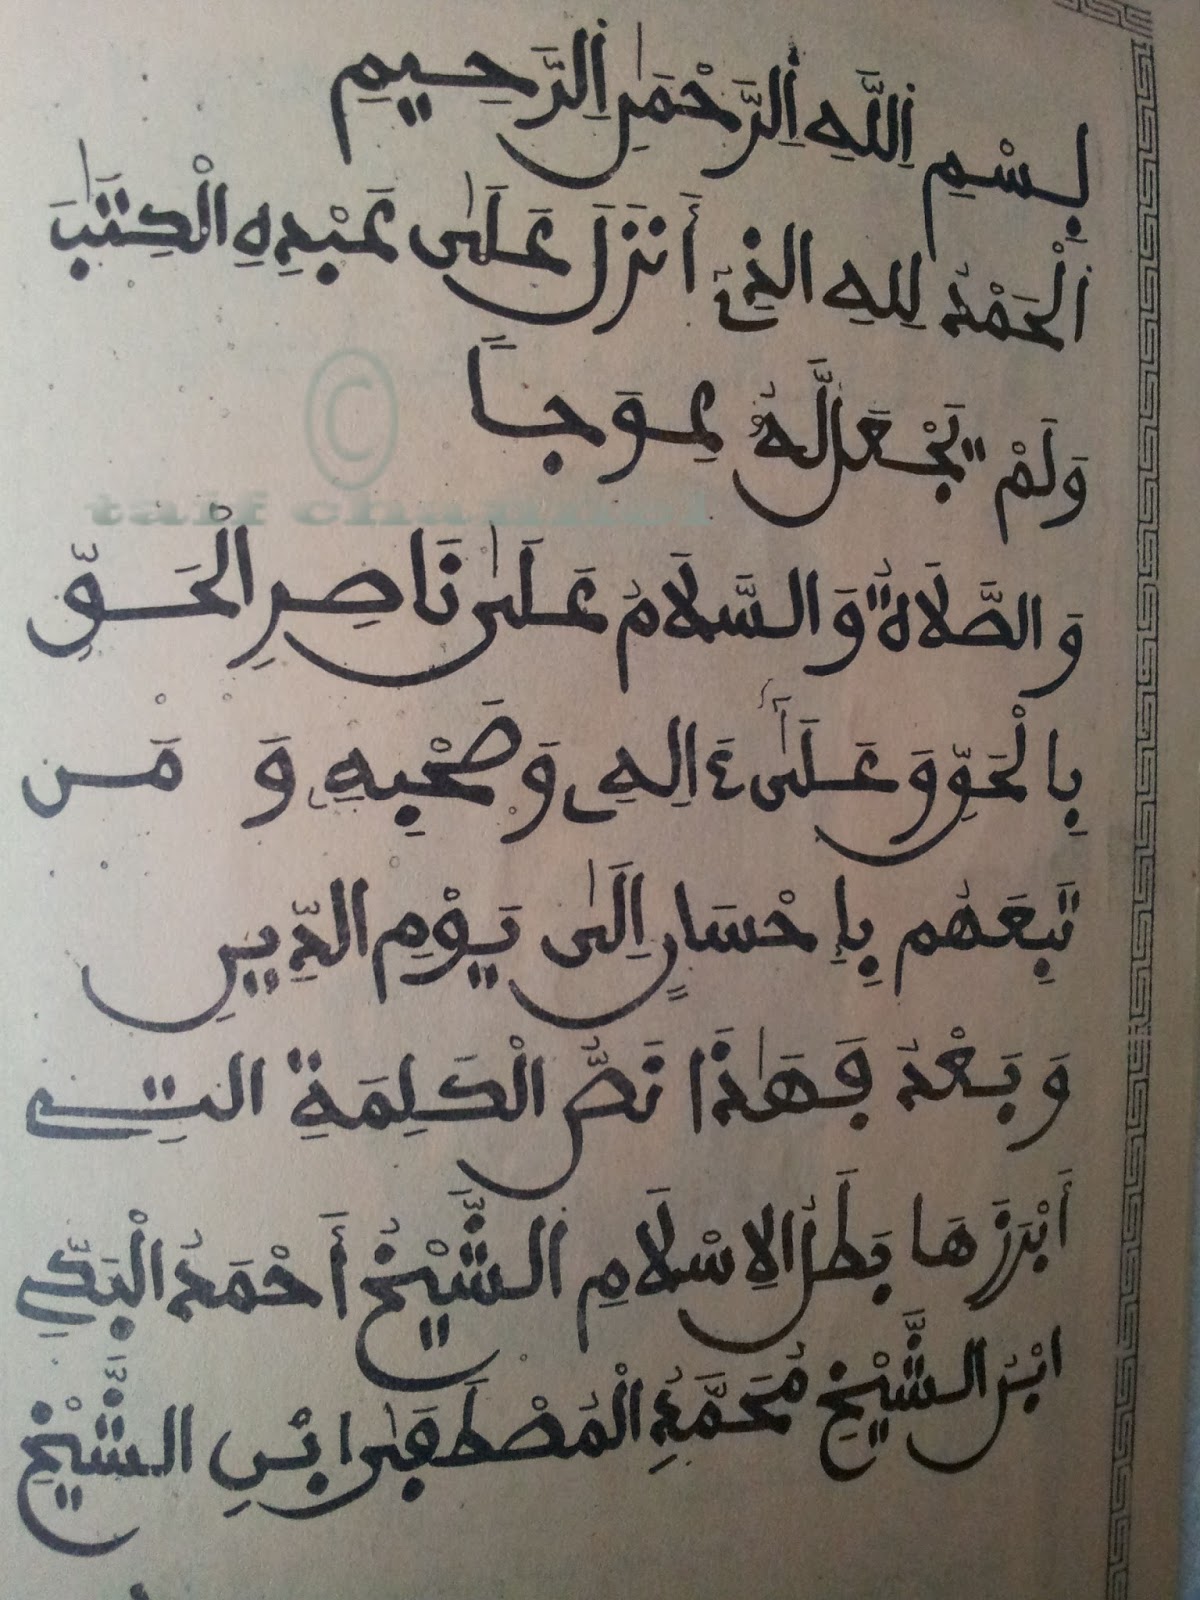 بِسْمِ اِللَّهِ اِلرَّحْمَٰنِ اِلرَّحِيمِ
اَلْحَمْدُ لِلهِ الذِے أَنزَلَ عَلَىٰ عَبْدِهِ الْكِتَٰبَ
وَلَمْ يَجْعَل لَّهُۥ عِوَجاً
وَالصَّلَاةُ وَالسَّلَامُ عَلَىٰ نَاصِرِ الْحَقِّ
بِالْحَقِّ وَعَلَىٰٓ ءَالِهِۦ وَصَحْبِهِۦ وَمَن
تَبِعَهُم بِإِحْسَانٍ إِلَىٰ يَوْمِ الدِّينِ
وَبَعْدُ فَهَٰذَا نَصُّ الْكَلِمَةِ التِے
أَبْرَزَهَا بَطَلُ الِاسْلَامِ الشَّيْخُ أَحْمَدُ الْبَكِّي
ابْنُ الشَّيْخِ مُحَمَّدِ الْمُصْطَفَىٰ ابْنِ الشَّيْخِ
taif channel